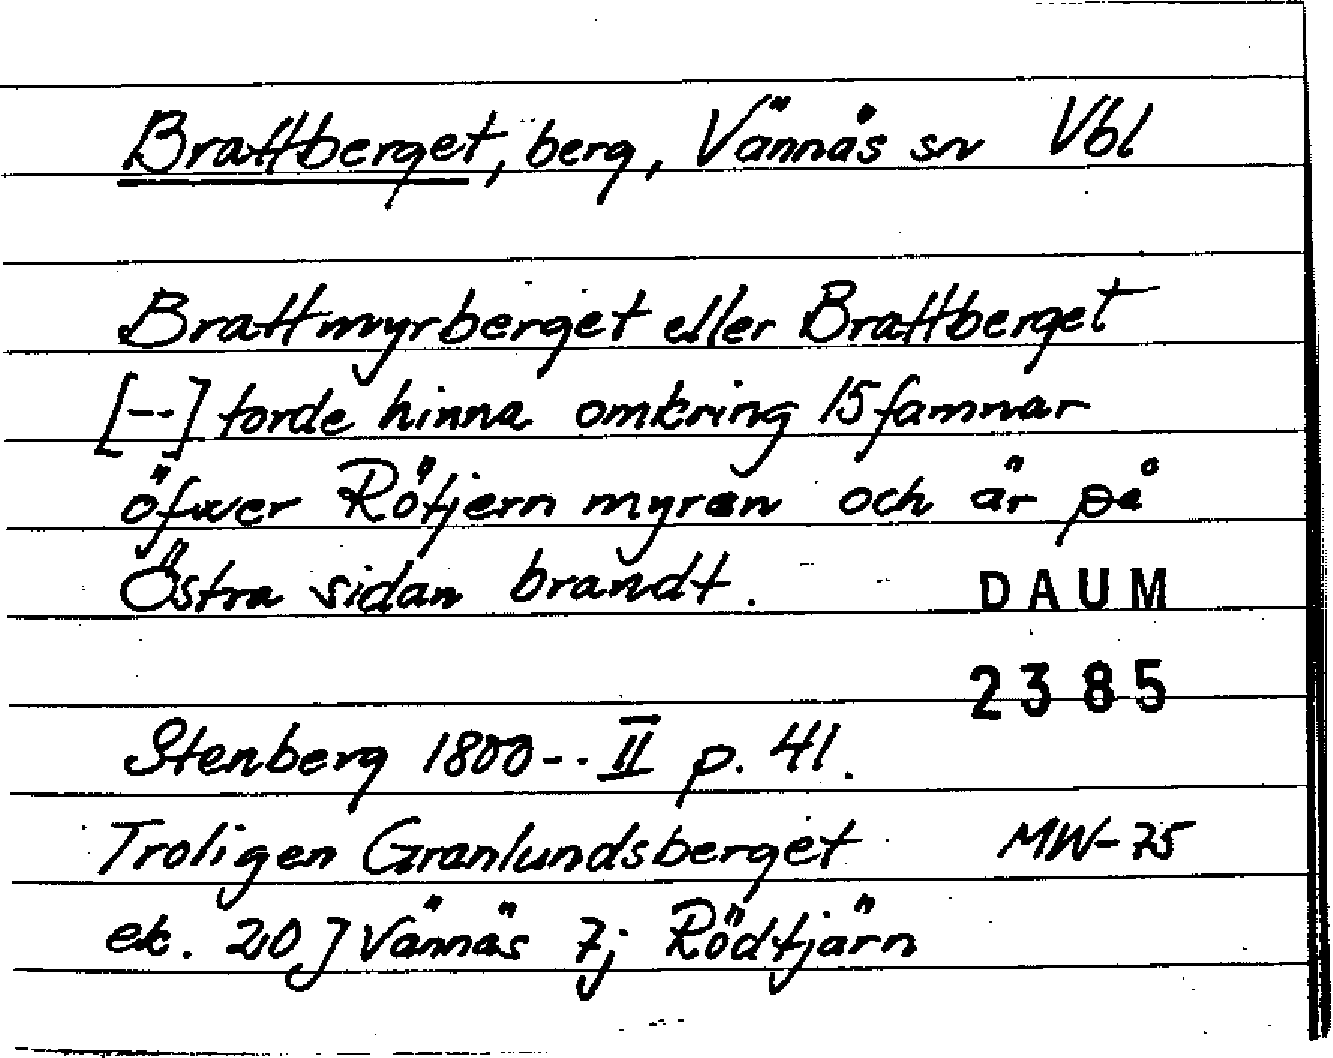 Brattberget, berg, Vännäs sn Vbl
Brattmyrberget eller Brattberget
[--] torde hinna omkring 15 famnar
öfwer Rötjern myran och är på
Östra sidan brandt.
DAUM
2385
Stenberg 1800-- II p. 41.
Troligen Granlundsberget MW-75
ek. 20J Vännäs 7j Rödtjärn